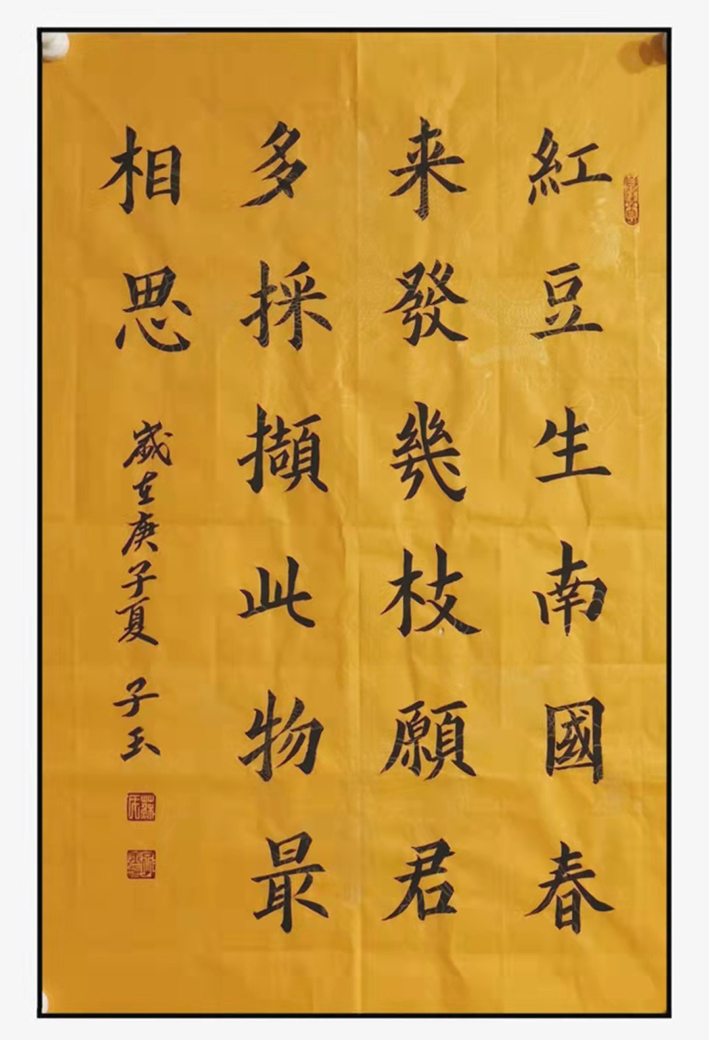 紅豆生南國春
来發幾枝願君
多採擷此物最
相思
歲在庚子夏 子玉